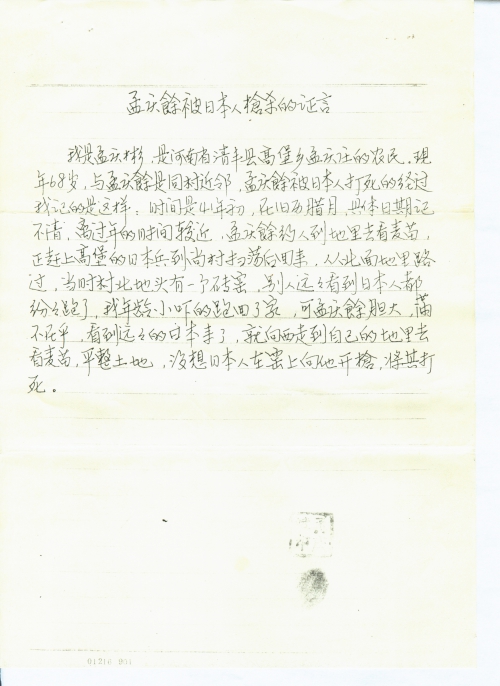 孟庆餘被日本人槍杀的证言
我是孟庆彬，是河南省清丰县高堡乡孟庆庄的农民。现
年68岁，与孟庆餘是同村近邻，孟庆餘被日本人打死的经过
我记的是这样：时间是41年初，在旧历腊月，具体日期记
不清，离过年的时间较近，孟庆餘约人到地里去看麦苗，
正赶上高堡的日本兵到尚村扫荡回来，从北面地里路
过，当时村北地头有一个砖窑，别人远々看到日本人都
纷々跑了，我年龄小吓的跑回了家，可孟庆餘胆大，满
不在乎，看到远々的日本来了，就向西走到自己的地里去
看麦苗，平整土地，没想日本人在窑上向他开槍，将其打
死。
01216